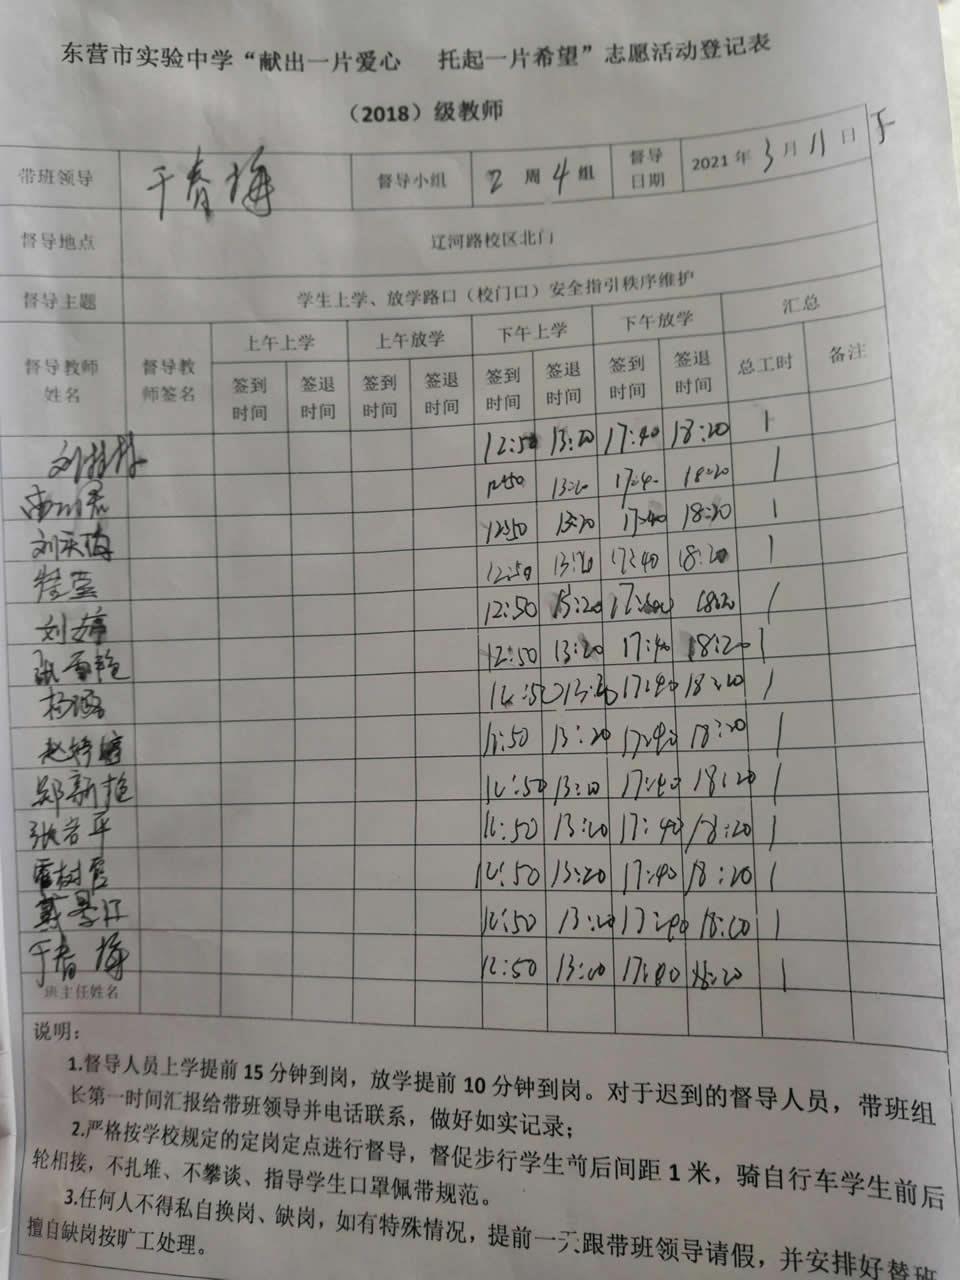 东营市实验中学“献出一片爱心 托起一片希望”志愿活动登记表
（2018）级教师
带班领导 于春梅 督导小组 2 周 4 组 督导日期 2021年3月11日
督导地点 辽河路校区北门
督导主题 学生上学、放学路口（校门口）安全指引秩序维护
督导教师姓名 督导教师签名 上午上学 上午放学 下午上学 下午放学 汇总
签到时间 签退时间 签到时间 签退时间 签到时间 签退时间 签到时间 签退时间 总工时 备注
12:50 13:20 17:40 18:20 1
12:50 13:20 17:40 18:20 1
12:50 13:20 17:40 18:20 1
12:50 13:20 17:40 18:20 1
刘婷 12:50 13:20 17:40 18:20 1
12:50 13:20 17:40 18:20 1
12:50 13:20 17:40 18:20 1
赵婷婷 12:50 13:20 17:40 18:20 1
郑新艳 12:50 13:20 17:40 18:20 1
12:50 13:20 17:40 18:20 1
12:50 13:20 17:40 18:20 1
12:50 13:20 17:40 18:20 1
于春梅 12:50 13:20 17:40 18:20 1
班主任姓名
说明：
1.督导人员上学提前15分钟到岗，放学提前10分钟到岗。对于迟到的督导人员，带班组
长第一时间汇报给带班领导并电话联系，做好如实记录；
2.严格按学校规定的定岗定点进行督导，督促步行学生前后间距1米，骑自行车学生前后
轮相接，不扎堆、不攀谈、指导学生口罩佩带规范。
3.任何人不得私自换岗、缺岗，如有特殊情况，提前一天跟带班领导请假，并安排好替班
擅自缺岗按旷工处理。